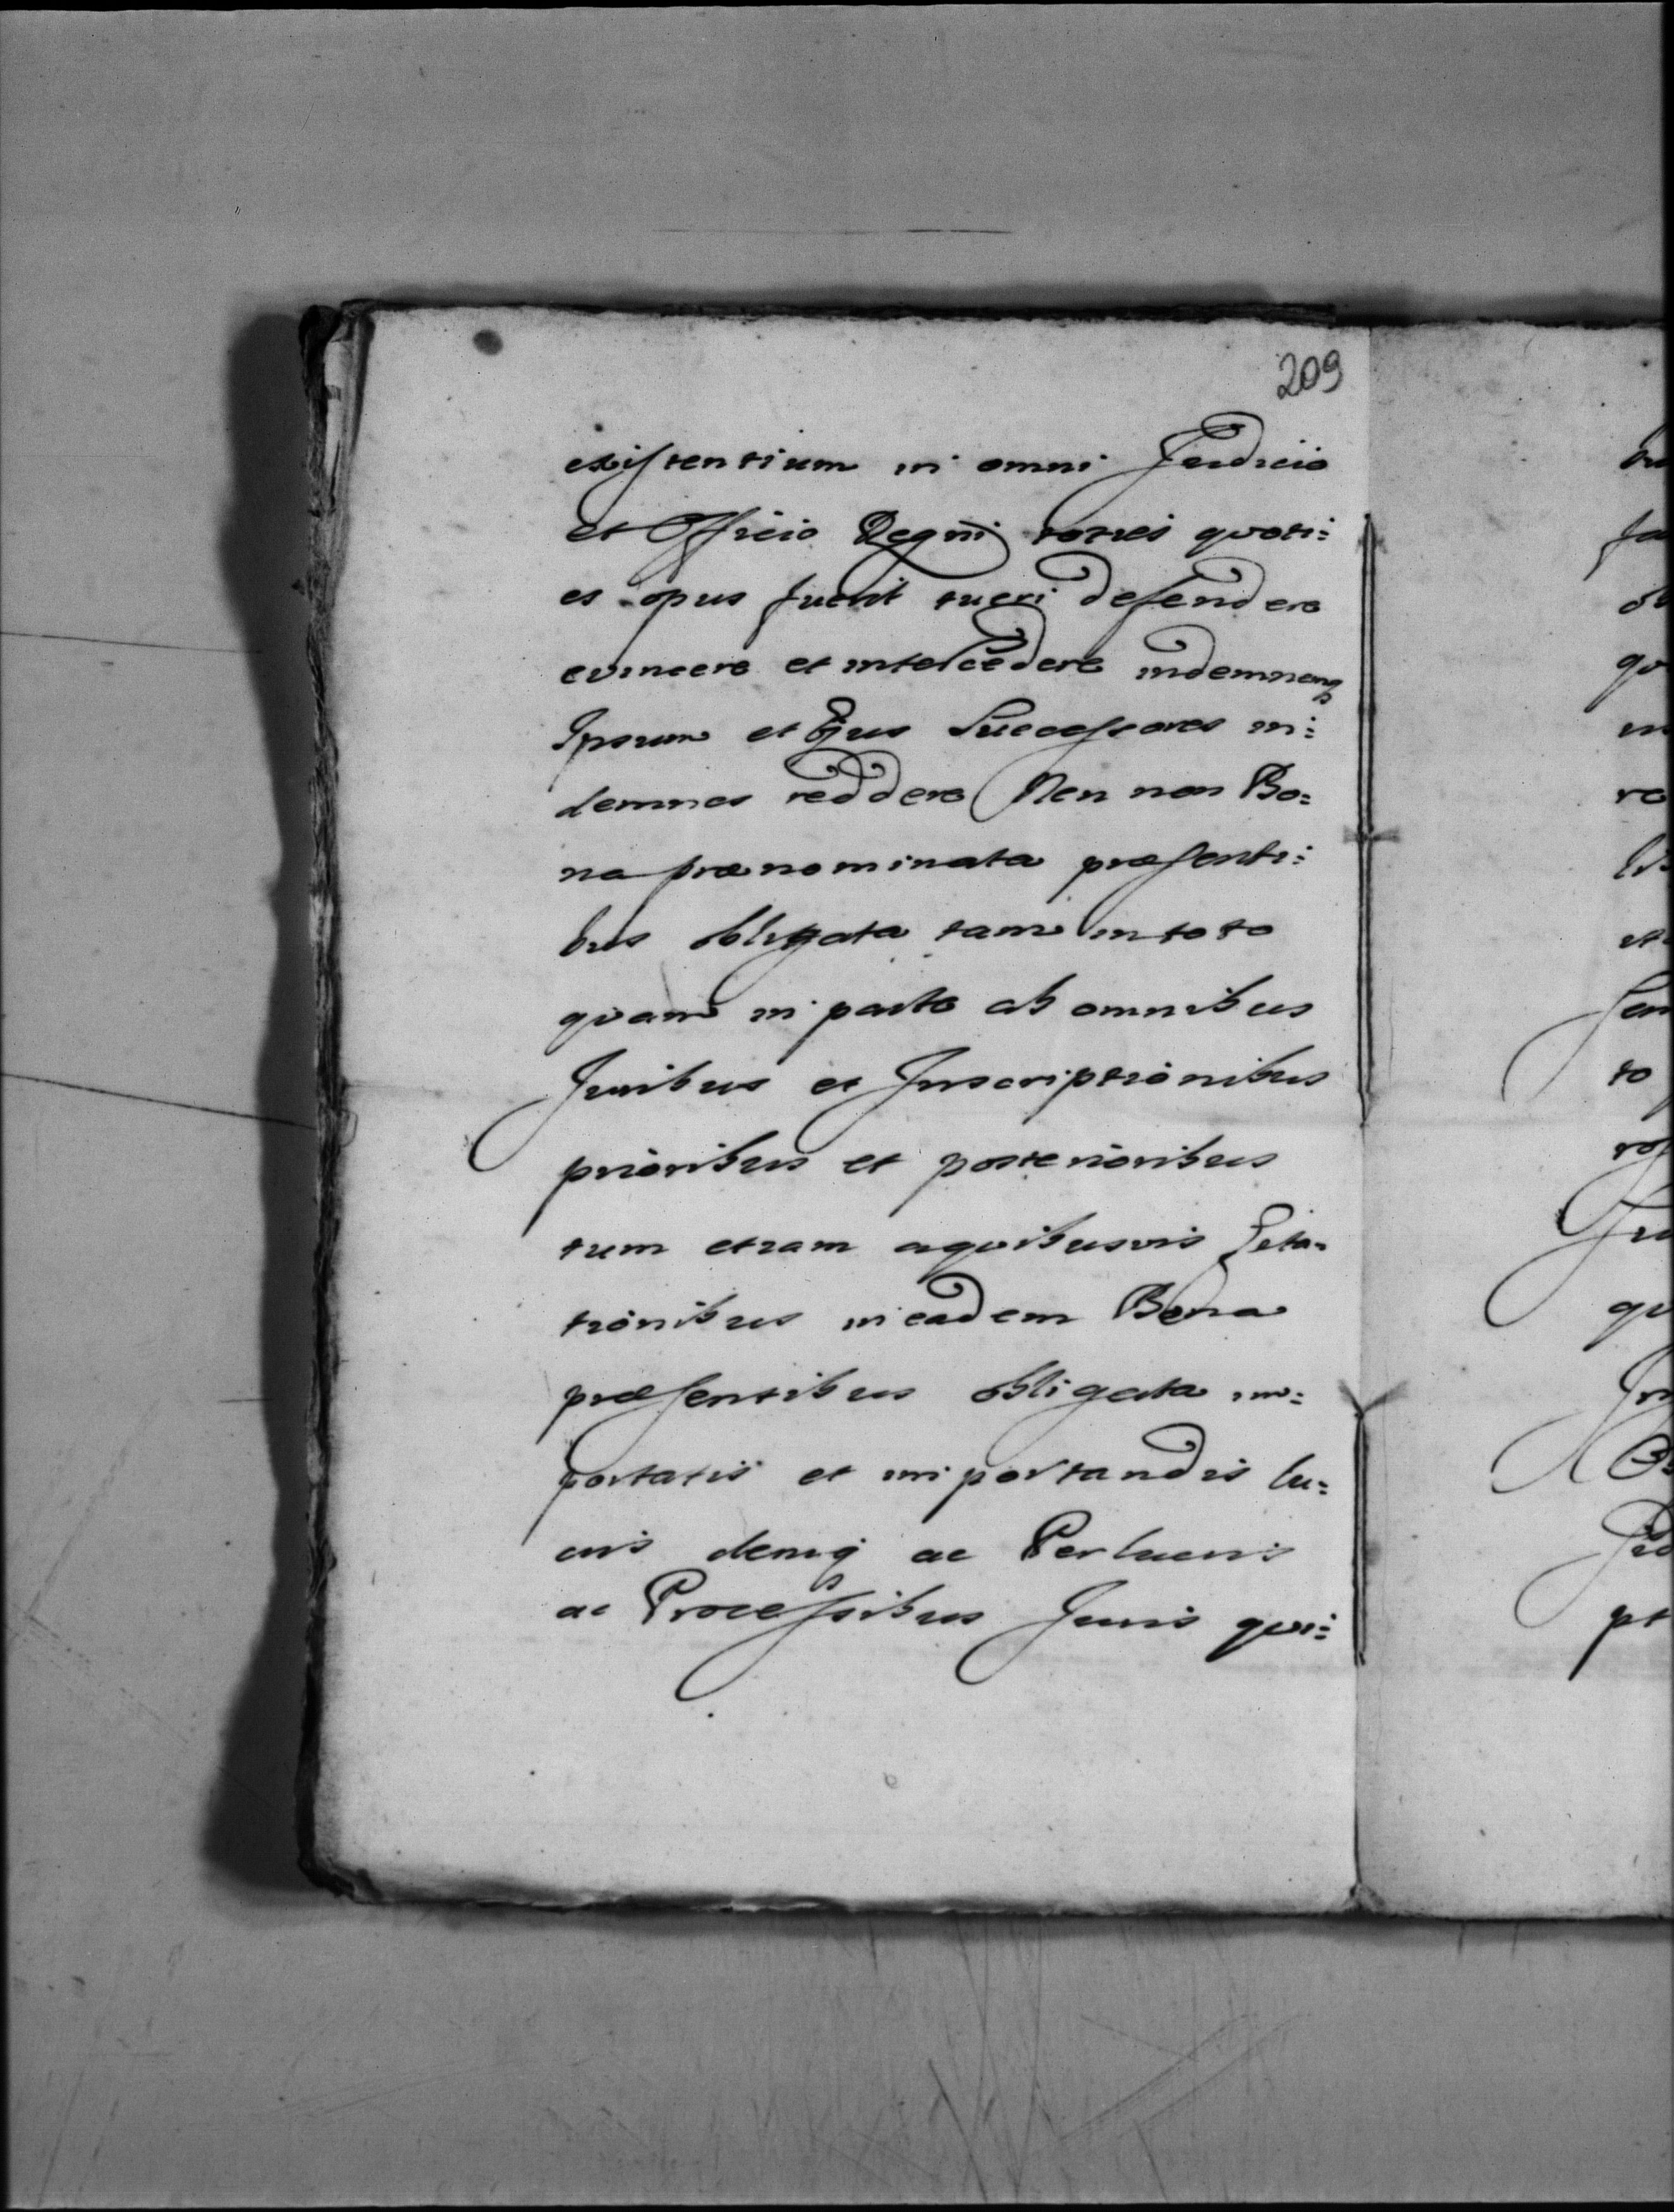 209
existentium in omni Judicio
et Officio Regni toties quoti:
es opus fuerit tueri defendere
evincere et intercedere indemnemq
Ipsum et Ejus Successores in:
demnes reddere Nec non Bo:
na prænominata præsenti:
bus obligata tam in toto
quam in parte ab omnibus
Juribus et Inscriptionibus
prioribus et posterioribus
tum etiam a quibusvis
tionibus in eadem Bona
præsentibus obligata im:
portatis et importandis lu:
cris deniq ac Perlucris
ac Processibus Juris qui: